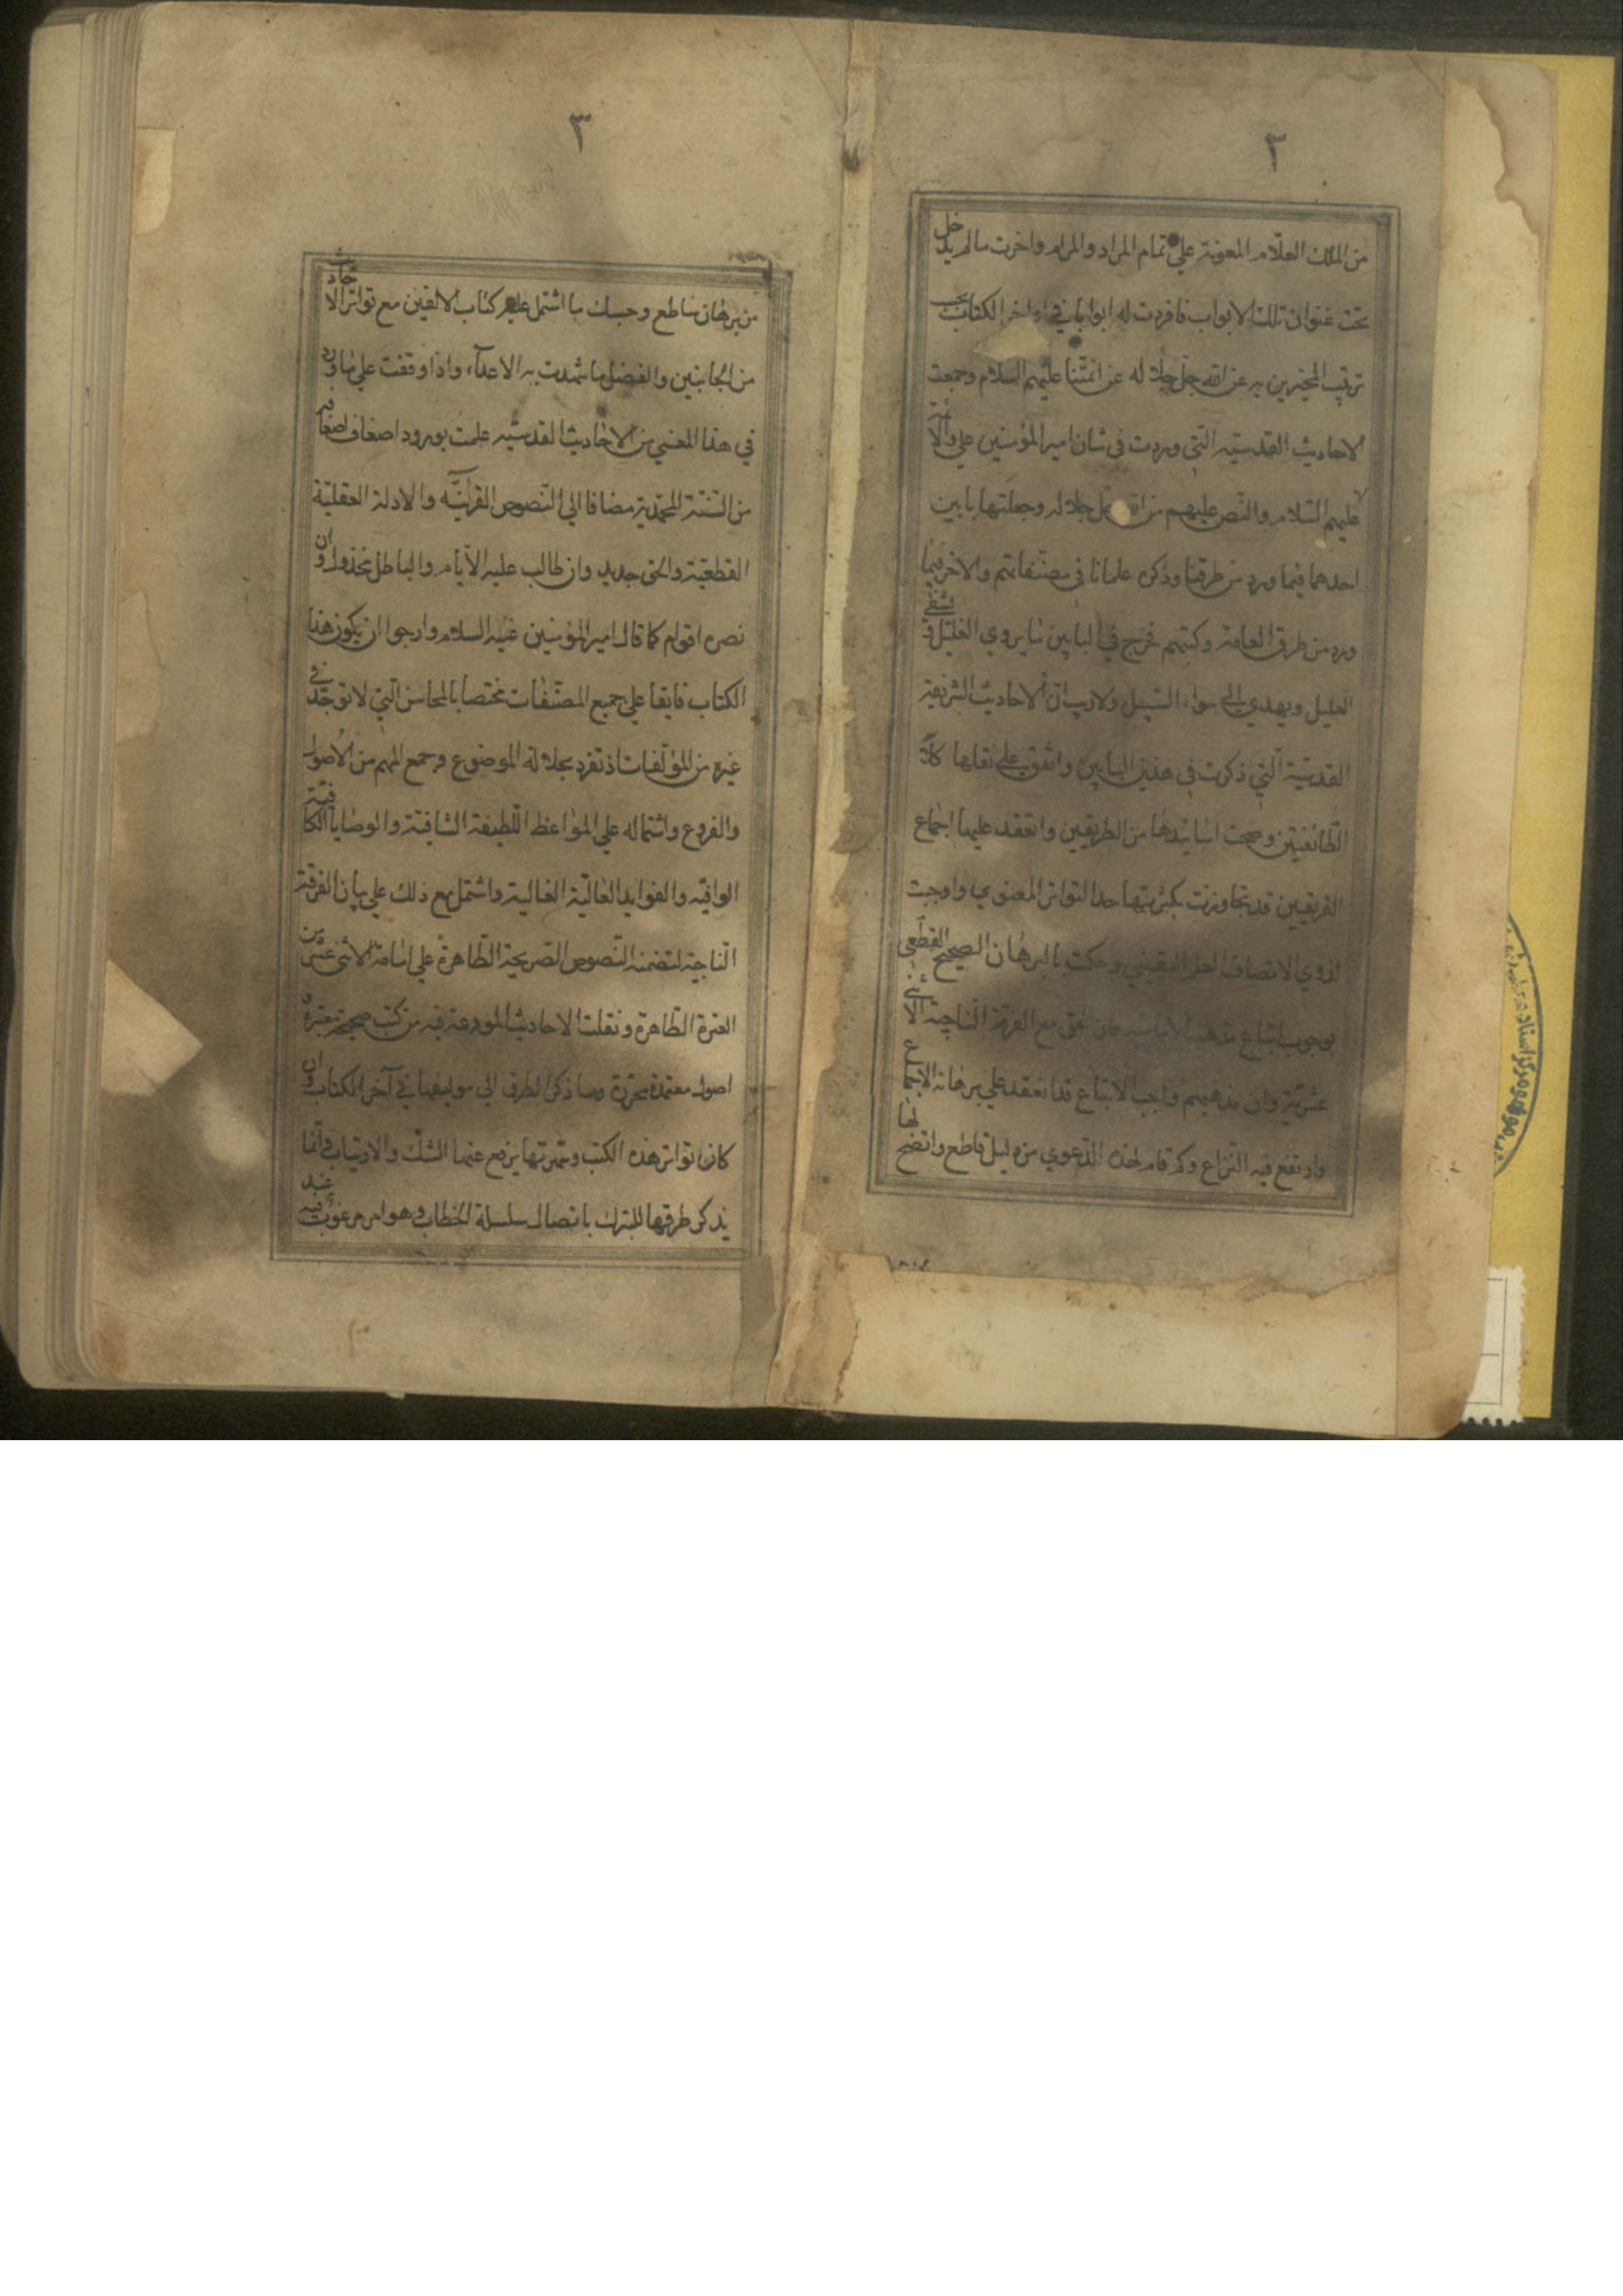 ٢
من الملك العلام المعونة علي تمام المراد والمرام واخرت ما لم يدخل
تحت عنوان تلك الابواب فافردت له ابوابا في اواخر الكتاب
ترتيب المخبرين به عن الله جل جلاله عن ائمتنا عليهم السلام وجمعت
الاحاديث القدسية التي وردت في شان امير المؤمنين علي والائمة
عليهم السلام والنص عليهم من الله جل جلاله وجعلتها بابين
احدهما فيما ورد من طرقنا وذكره علمائنا في مصنفاتهم والاخر فيما
ورد من طرق العامة وكتبهم فخرج في البابين ما يروي الغليل ويشفي
العليل ويهدي الي سواء السبيل ولا ريب ان الاحاديث الشريفة
القدسية التي ذكرت في هذين البابين واتفق علي نقلها كلا
الطائفتين وصحت اسانيدها من الطريقين وانعقد عليها اجماع
الفريقين قد تجاوزت بكثرتها حد التواتر المعنوي واوجبت
لذوي الانصاف العلم اليقيني وحكمت بالبرهان الصحيح القطعي
بوجوب اتباع مذهب الامامية وان الحق مع الفرقة الناجية الاثني
عشرية وان مذهبهم واجب الاتباع قد انعقد علي برهانه الاجماع
وارتفع فيه النزاع وكم قام لهذه الدعوي من دليل قاطع واتضح لها
٣
من برهان ساطع وحسبك ما اشتمل عليه كتاب الالفين مع تواتر الاحاديث
من الجانبين والفضل ما شهدت به الاعداء واذا وقفت علي ما ورد
في هذا المعني من الاحاديث القدسية علمت بورود اضعاف اضعافه
من السنة المحمدية مضافا الي النصوص القرانيه والادلة العقلية
القطعية والحق جديد وان طالت عليه الايام والباطل مخذول وان
نصره اقوام كما قال امير المؤمنين عليه السلام وارجوا ان يكون هذا
الكتاب فايقا علي جميع المصنفات مختصا بالمحاسن التي لا توجد في
غيره من المؤلفات اذ تفرد بجلالة الموضوع وجمع المهم من الاصول
والفروع واشتماله علي المواعظ اللطيفة الشافية والوصايا الكافية
الوافيه والفوايد العالية الغالية واشتمل مع ذلك علي بيان الفرقة
الناجية لتضمنه النصوص الصريحة الظاهرة علي امامة الاثني عشر من
العترة الطاهرة ونقلت الاحاديث المودعة فيه من كتب صحيحة معتبرة و
اصول معتمدة محررة وساذكر الطرق الي مولفيها في آخر الكتاب وان
كان تواتر هذه الكتب وشهرتها يرفع عنها الشك والارتياب وانما
نذكر طرقها للتبرك باتصال سلسلة الخطاب وهو امر مرغوب فيه عند